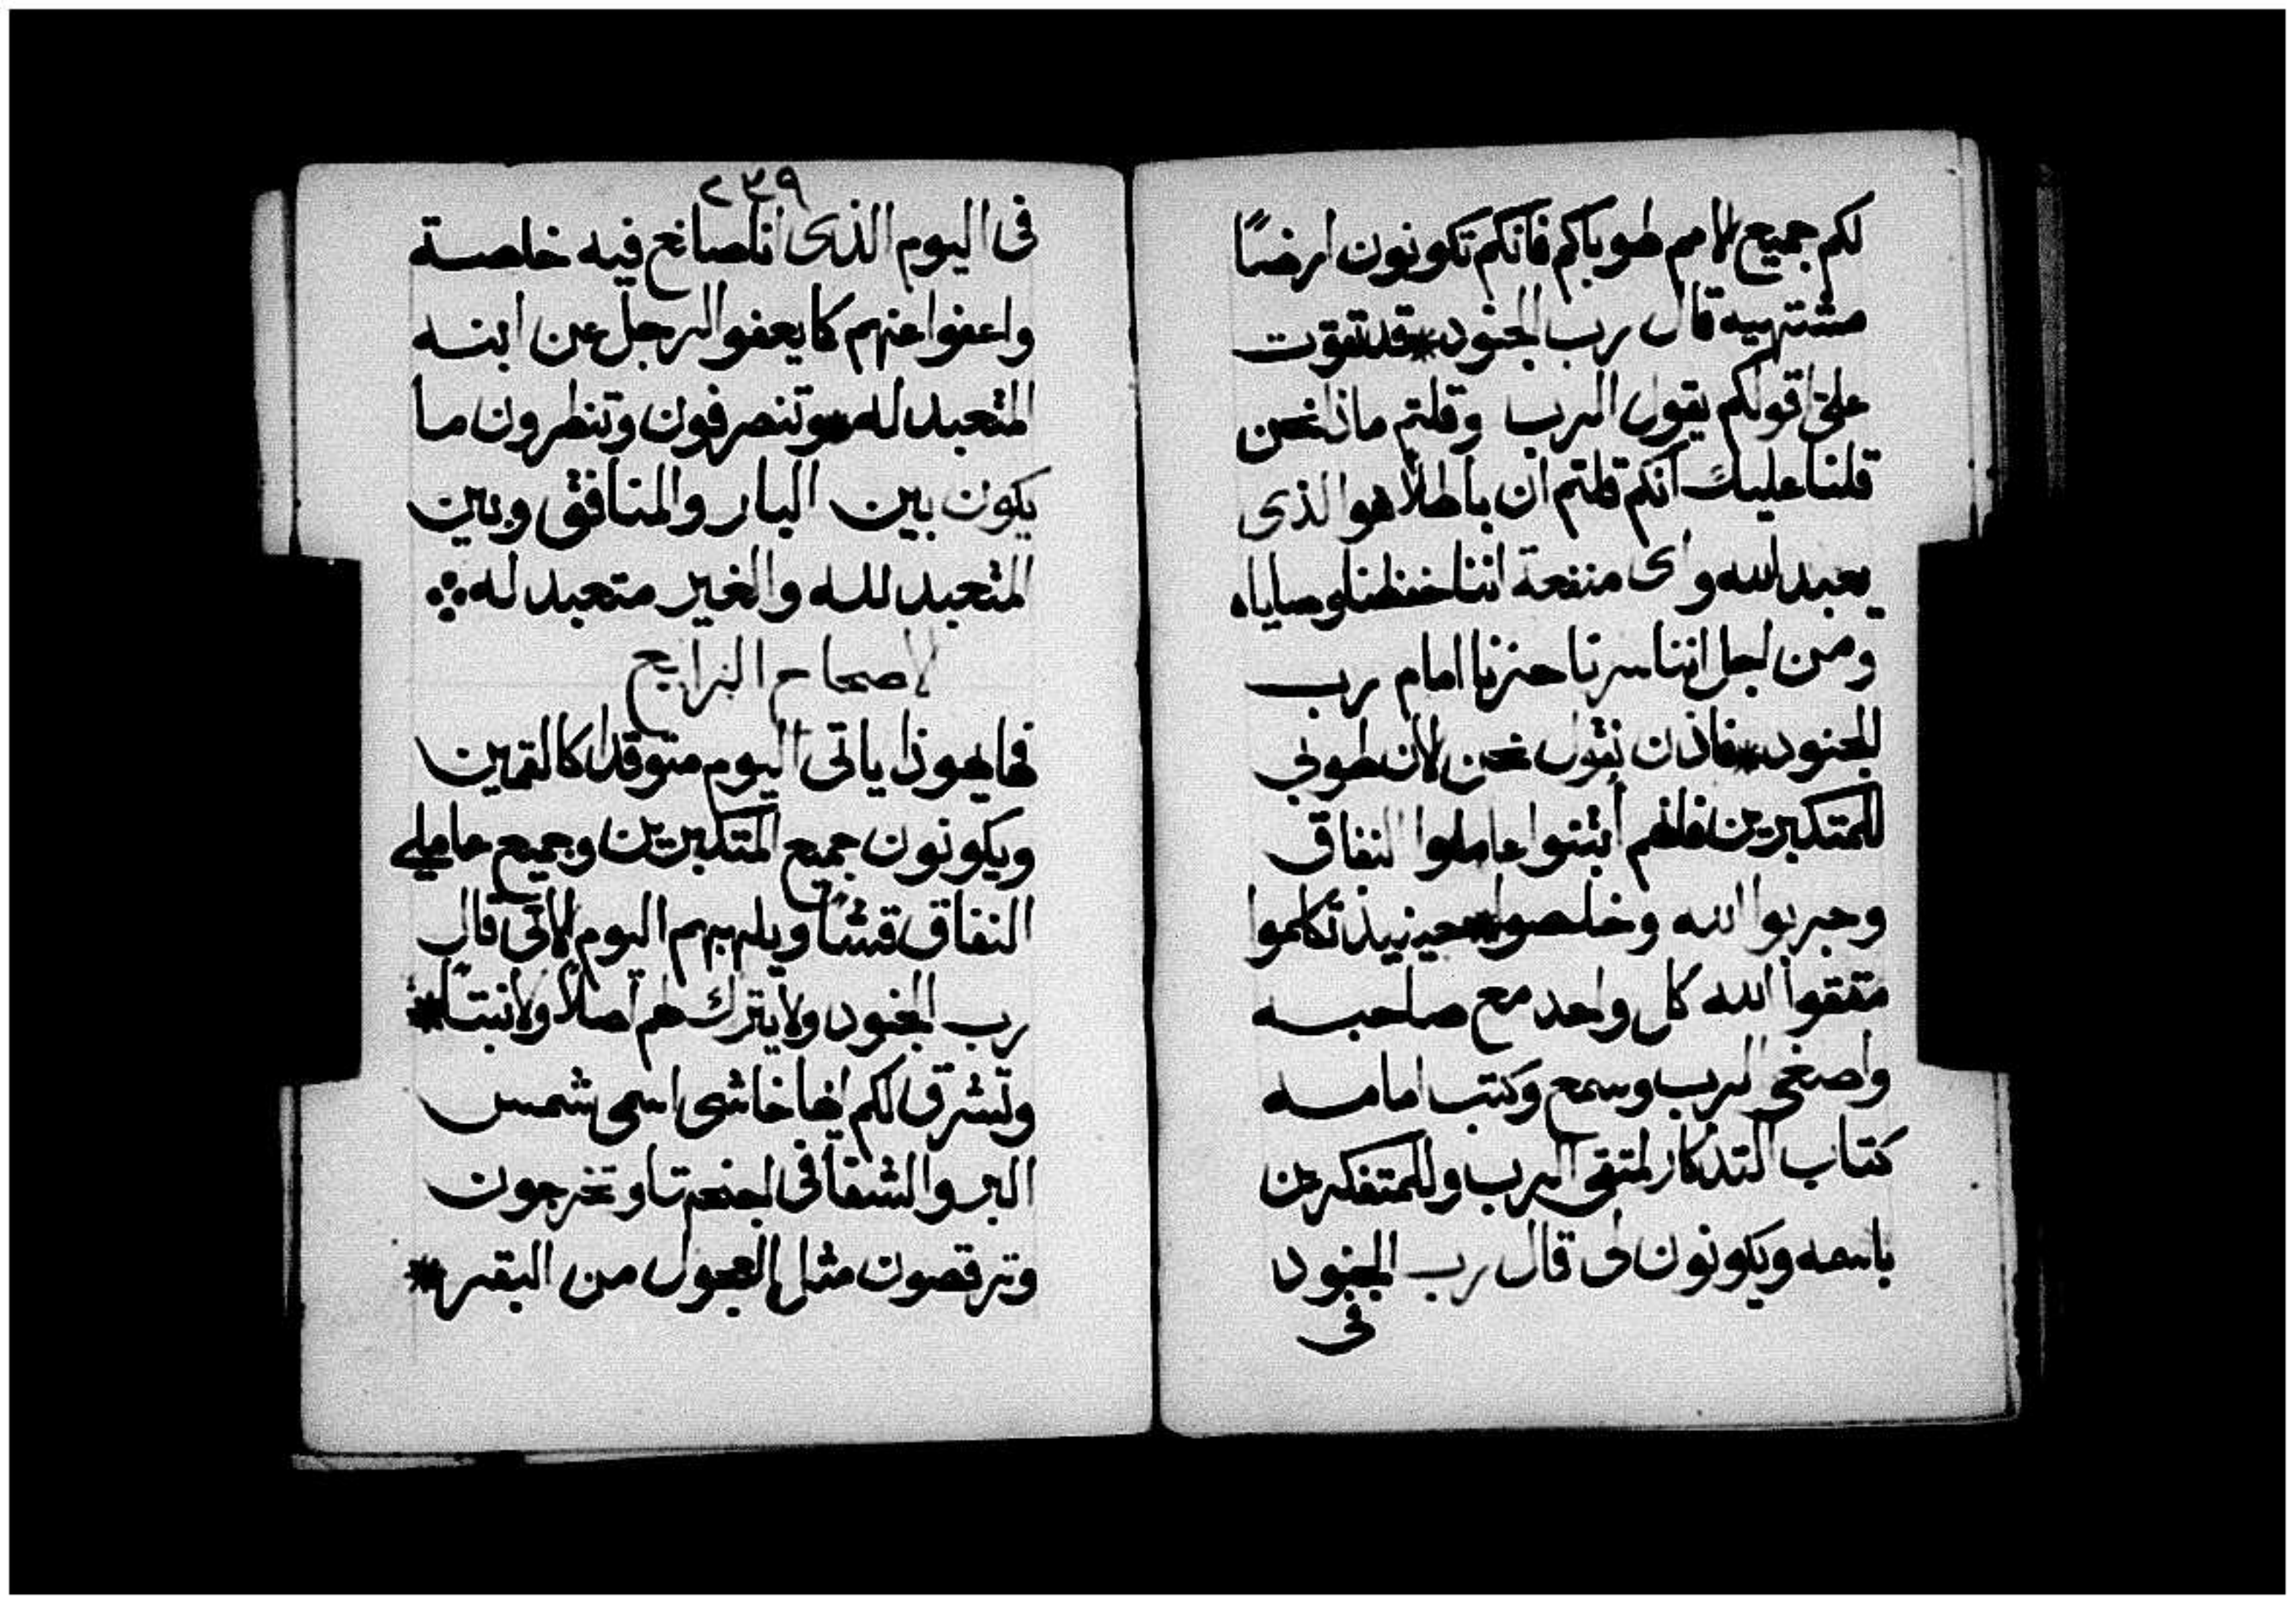 لكم جميع الامم طوباكم فانكم تكونون ارضًا
مشتهيه قال رب الجنود * قد تقوت
على اقولكم يقول الرب وقلتم ماذا نحن
قلنا عليك انكم قلتم ان باطلاً هو الذى
يعبد لله واى منفعة اننا حفظنا وصاياه
ومن لجل اننا سرنا حزنا امام رب
الجنود * فاذن نقول نحن الان طوبى
للمتكبرين فانهم أبتنوا عاملوا النفاق
وجربوا الله وخلصوا * حينيذ تكلموا
متقوا الله كل واحد مع صاحبه
واصغى الرب وسمع وكتب امامه
كتاب التذكار لمتقى الرب وللمتفكرين
باسمه ويكونون لى قال رب الجنود
فى
٢٣٩
فى اليوم الذى انا صانع فيه خاصة
واعفوا عنهم كا يعفوا الرجل عن ابنه
المتعبد له * وتنصرفون وتنظرون ما
يكون بين البار والمنافق وبين
المتعبد لله والغير متعبد له
الاصحاح الرابع
فها هوذا ياتى اليوم متوقدا كالتمين
ويكونون جميع المتكبرين وجميع عاملي
النفاق قشاً ويلهبهم اليوم الاتى قال
رب الجنود ولا يترك لهم اصلاً ولا نبتاً *
وتشرق لكم ايها خاشى اسمى شمس
البر والشفا فى اجنحتها وتخرجون
وترقصون مثل العجول من البقر *